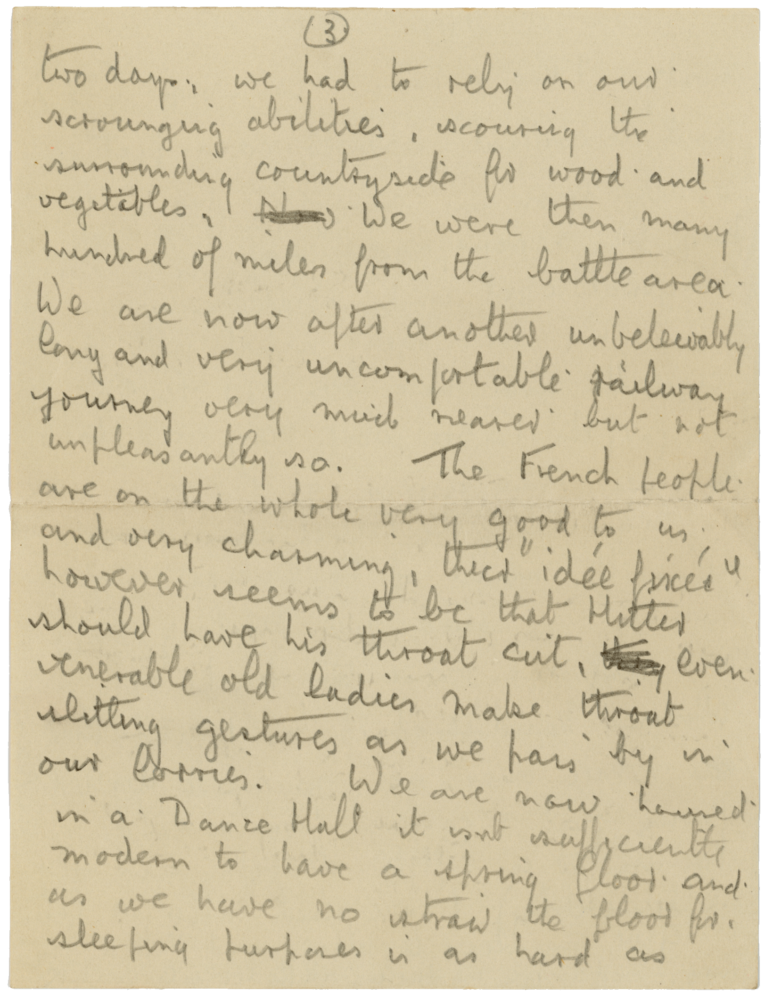 (3)
two days, we had to rely on our
scrounging abilities, scouring the
surrounding countryside for wood and
vegetables, We were then many
hundred of miles from the battle area.
We are now after another unbeleivably
long and very uncomfortable railway
journey very much nearer but not
unpleasantly so. The French people
are on the whole very good to us,
and very charming, their "idée fixée"
however seems to be that Hitler
should have his throat cut, even
venerable old ladies make throat
slitting gestures as we pass by in
our lorries. We are now housed
in a Dance Hall it isnt sufficiently
modern to have a spring floor and
as we have no straw the floor for
sleeping purposes is as hard as